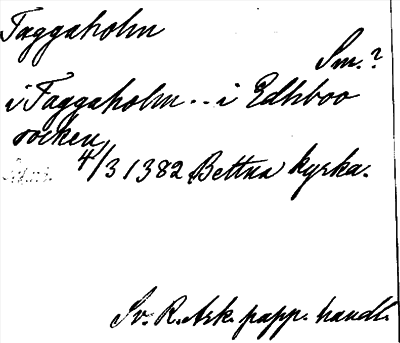 Taggaholm
Sm.?
i Taggaholm .. i Edhboo
socken
4/3 1382 Bettna kyrka.
Sv. R. Ark. papp. handl.